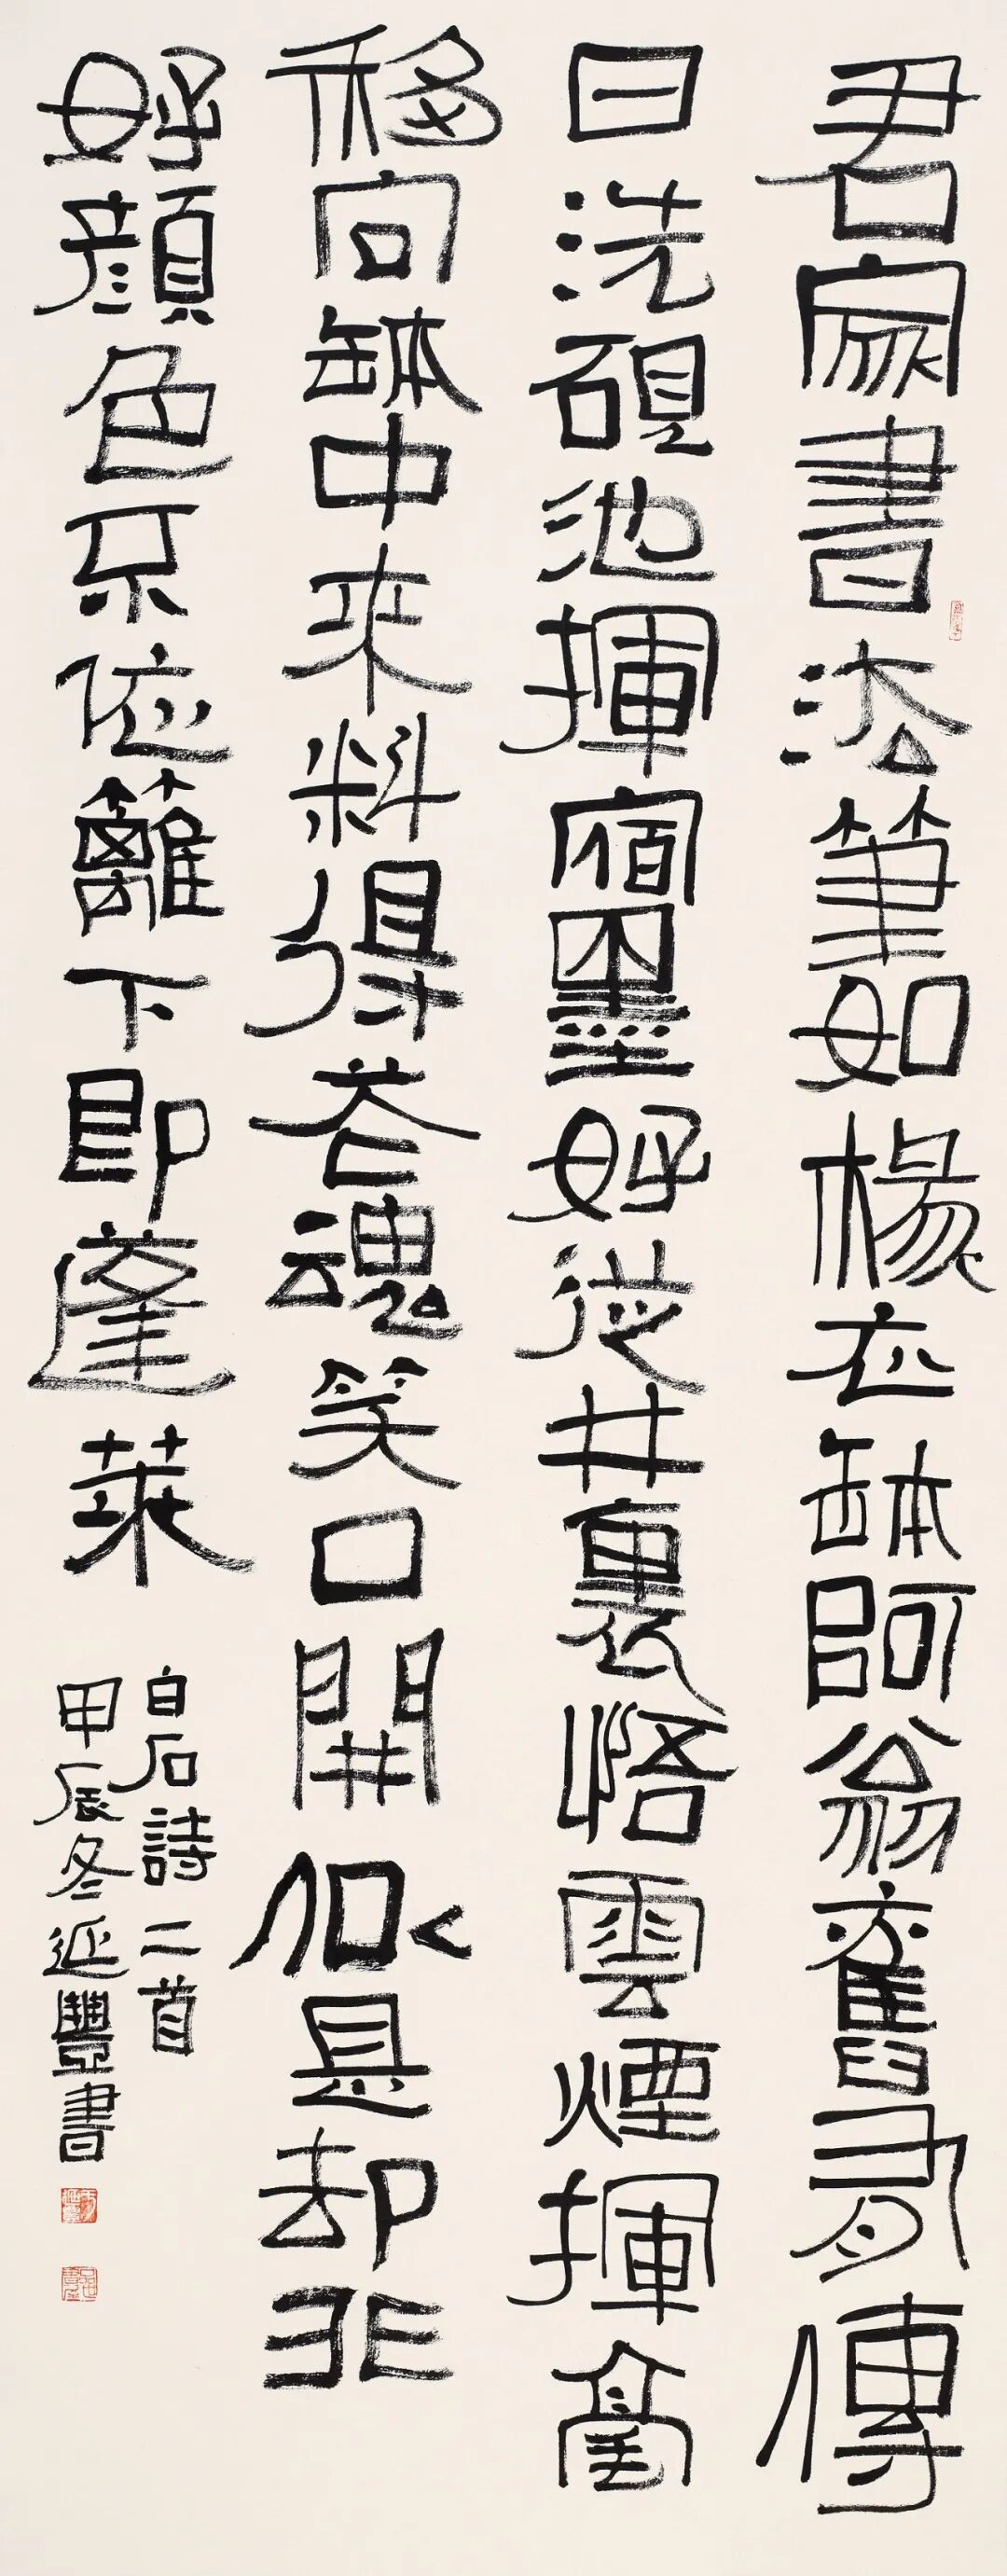 君家書法筆如椽衣缽阿翁舊有傳
日洗硯池揮宿墨好從井裏悟雲煙揮毫
移向缽中來料得花魂笑口開似是却非
好顏色不依籬下即蓬萊
白石詩二首
甲辰冬延豐書